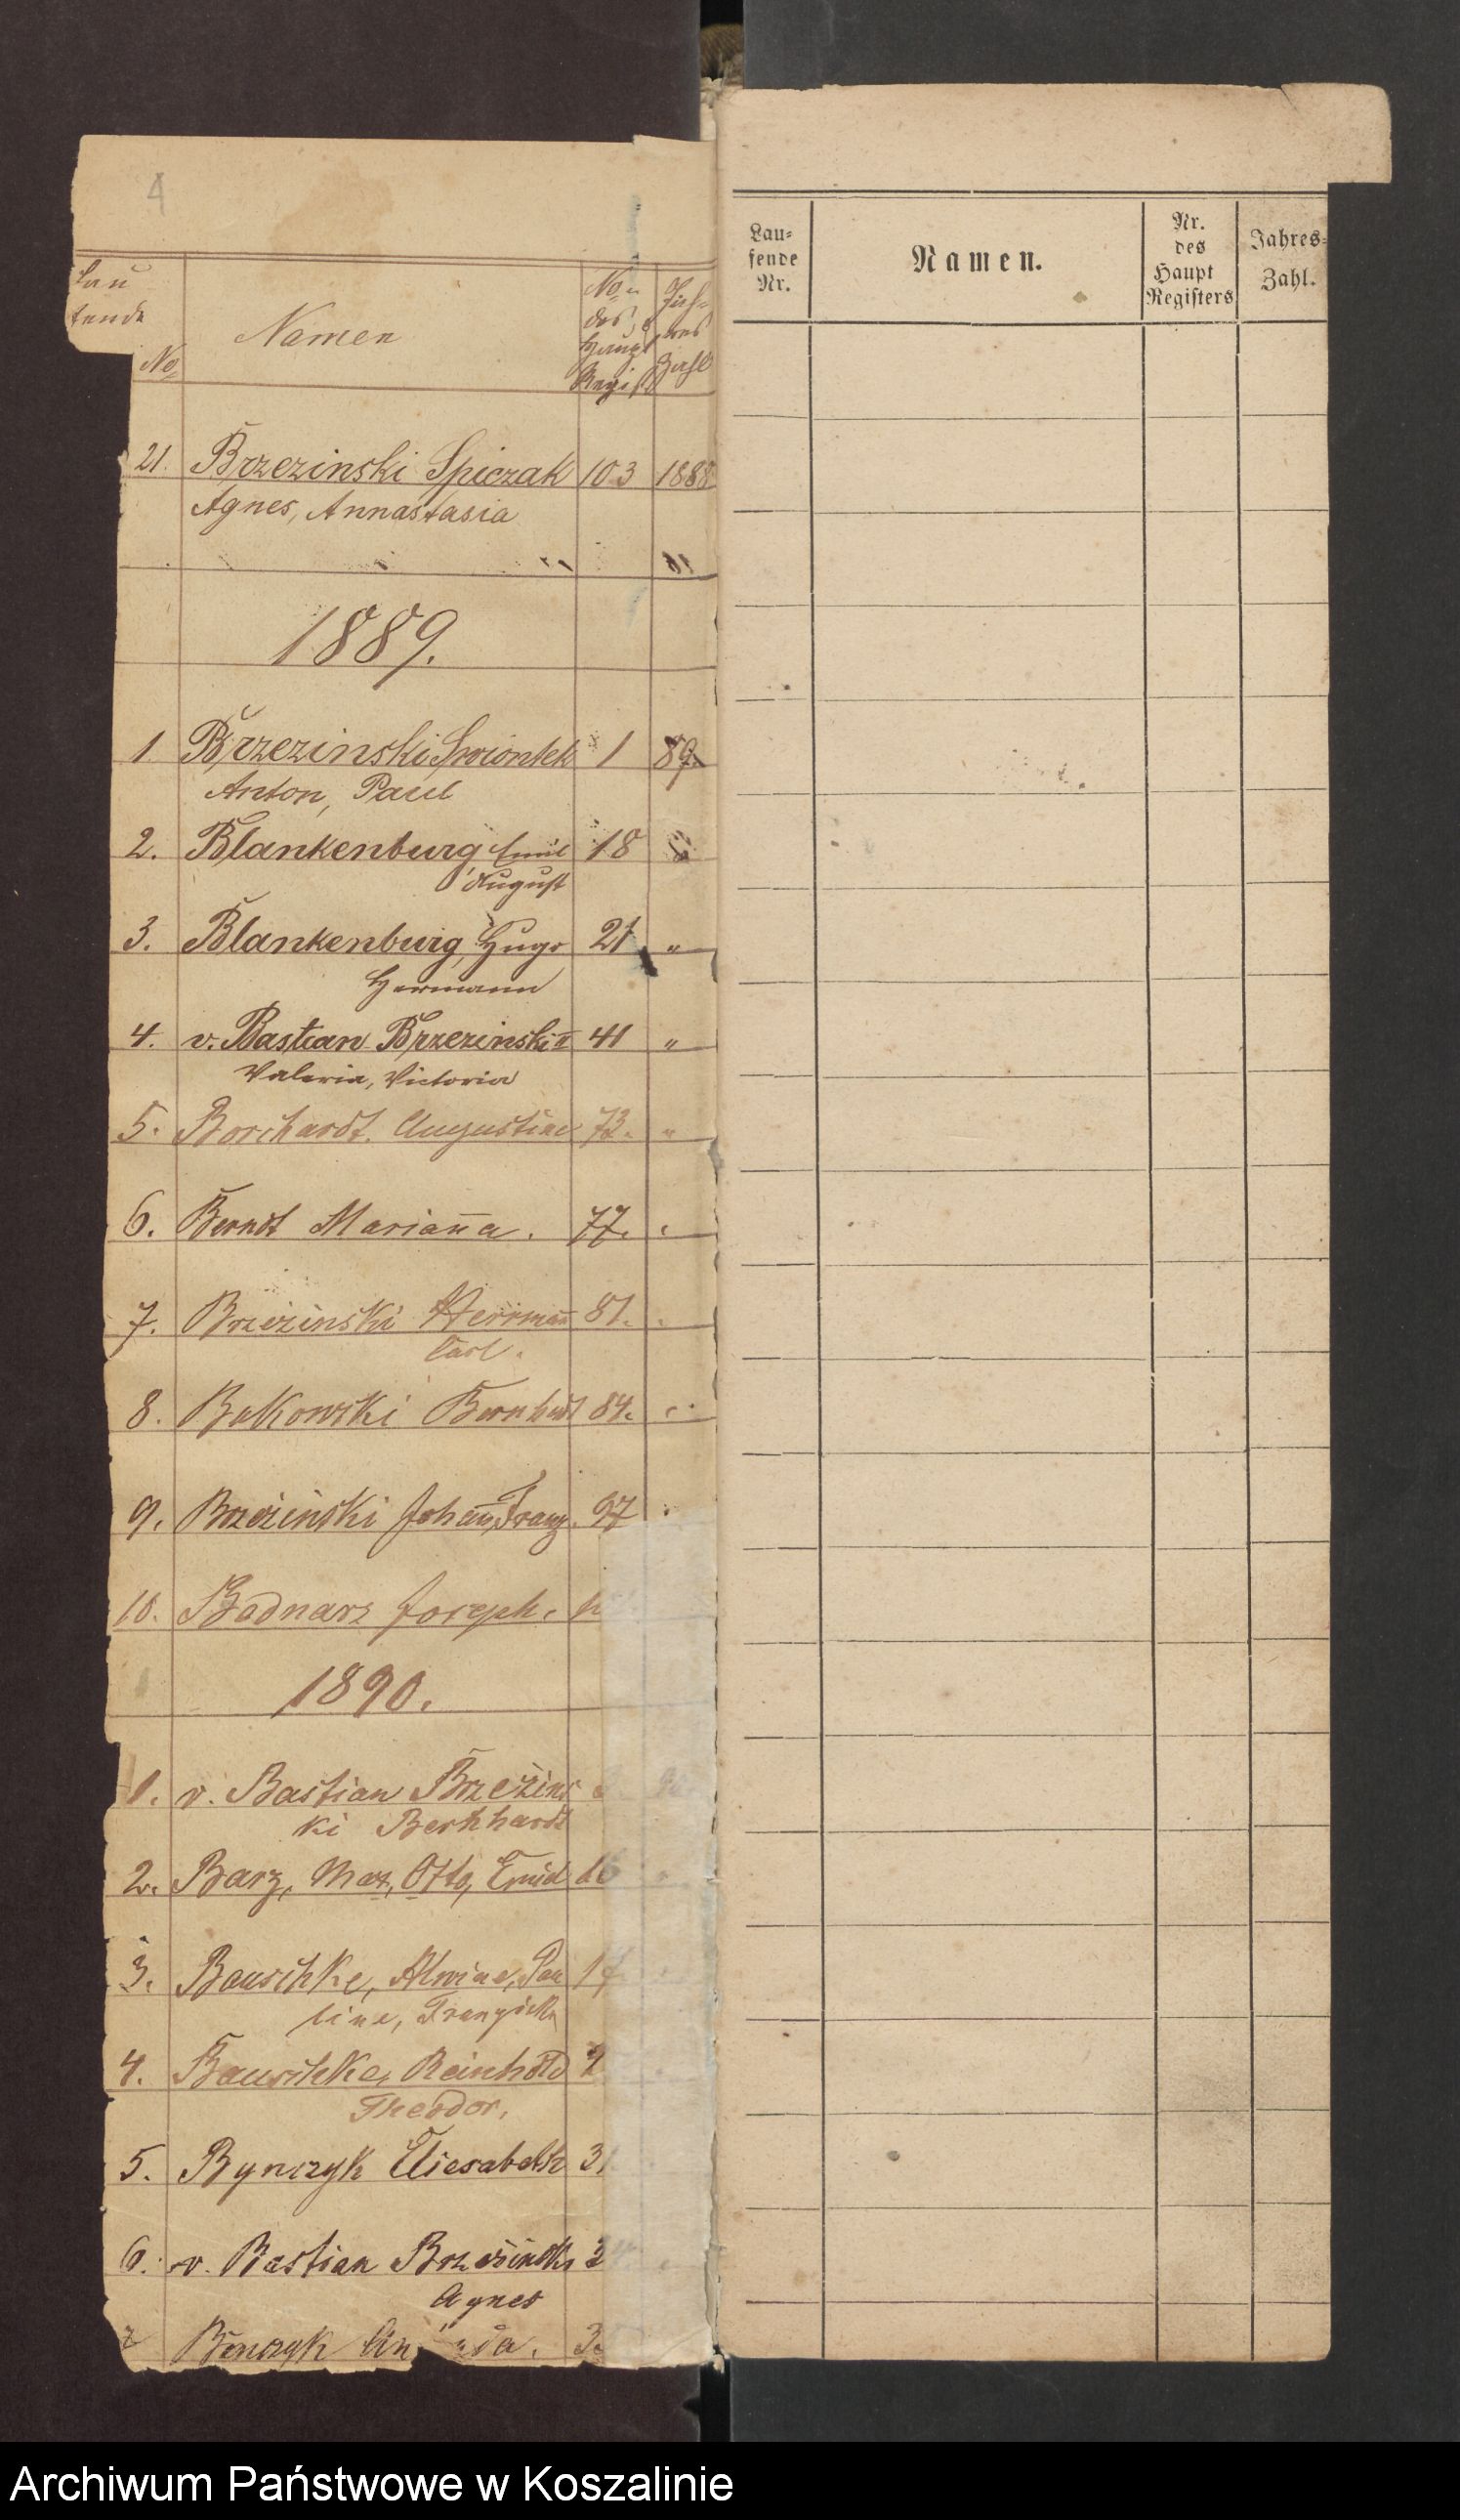 4
Lau
fende
No
Namen
No
des
Haupt
Regist
Jah-
res
Zahl
21. Brzezinski Spiczak 103 1888
Agnes, Annastasia
1889.
1 Brzezinski Swiontek 1 89.
Anton, Paul
2. Blankenburg, Emil 18
August
3. Blankenburg, Hugo 21 "
Hermann
4. v. Bastian Brzezinski II 41 "
Valeria, Victoria
5. Borchardt. Augustine 73. "
6. Berndt Marian̄a. 77.
7. Brzezinski Herrman̄ 81.
Carl.
8. Bukowski Bernhard 84.
9. Brzezinski Johan̄, Franz. 97
10. Bednarz Joseph.
1890.
1. v. Bastian Brzezins
ki Bernhardt
2. Barz, Max, Otto, Emil 16
3. Bauschke, Alwine, Pau 17
line, Franziska
4. Bauschke, Reinhold
Theodor.
5. Bynczyk Eliesabeth 31
6. v. Bastian Brzezinski
Agnes
Lau=
fende
Nr.
Namen.
Nr.
des
Haupt
Registers
Jahres=
Zahl.
Archiwum Państwowe w Koszalinie